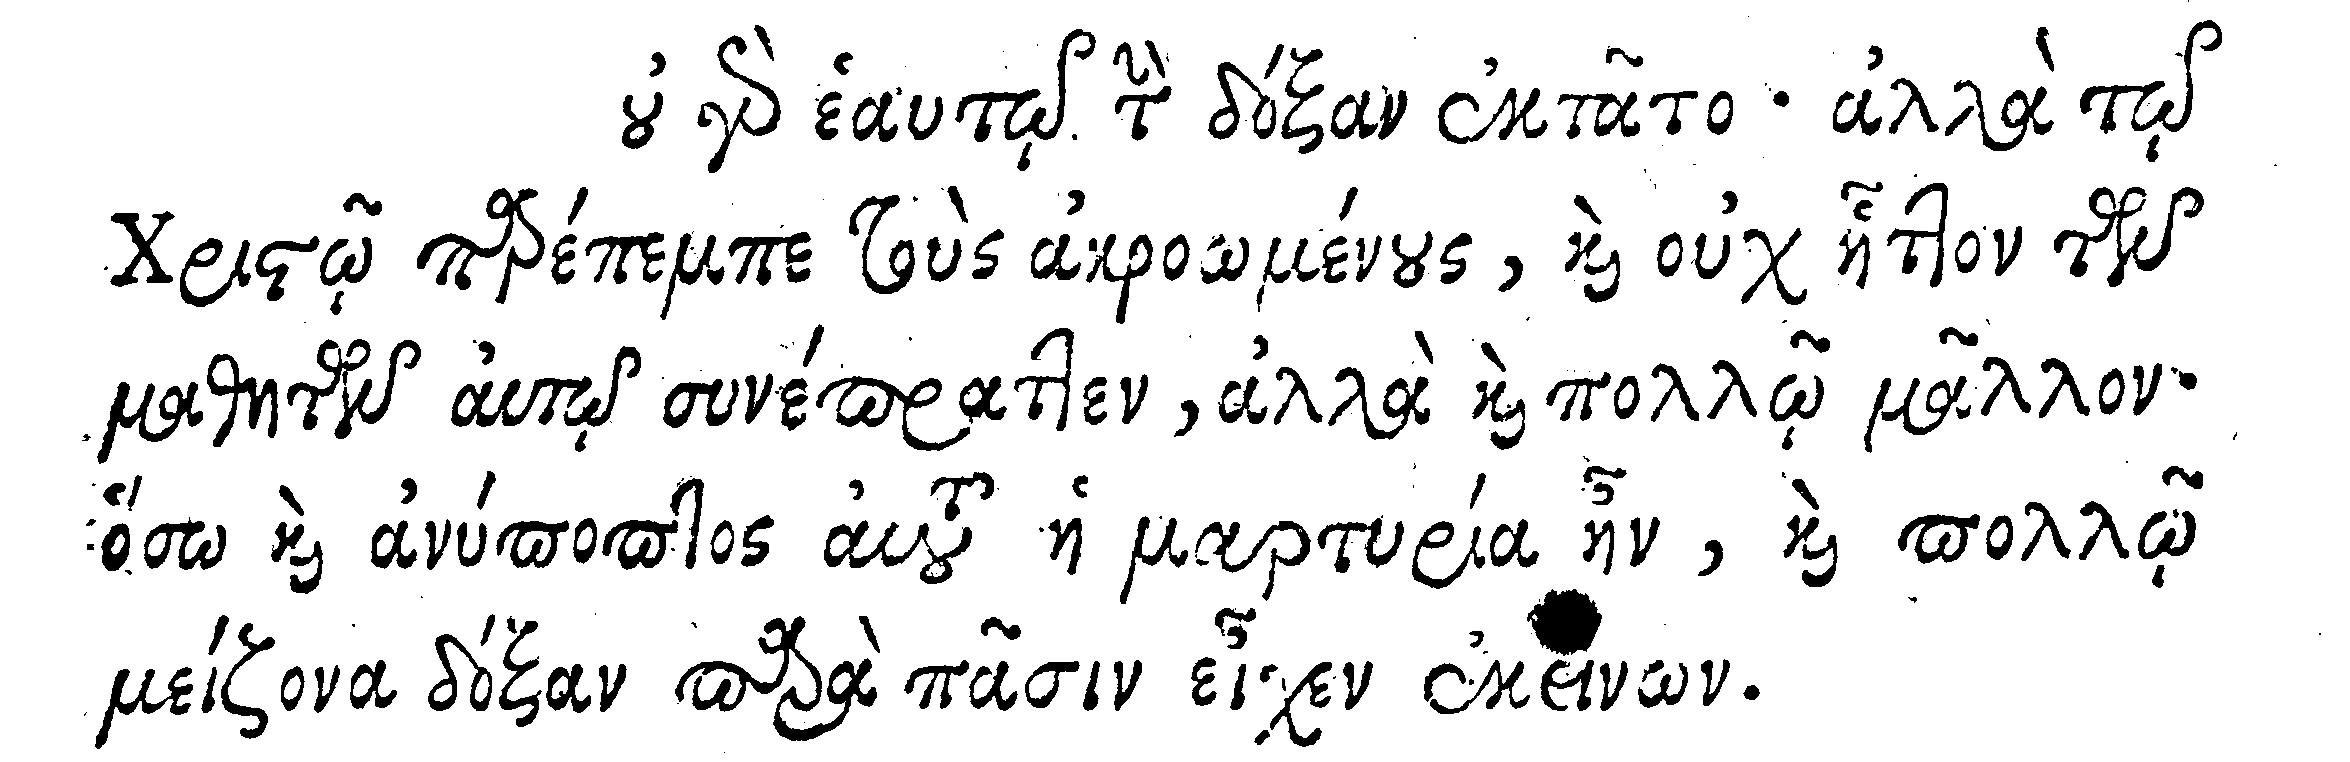 οὐ γὰρ ἑαυτῷ τὴν δόξαν ἐκτᾶτο· ἀλλὰ τῷ
Χριστῷ παρέπεμπε τοὺς ἀκροωμένους, καὶ οὐχ ἧττον τῶν
μαθητῶν αὐτῷ συνέπραττεν, ἀλλὰ καὶ πολλῷ μᾶλλον·
ὅσω καὶ ἀνύποπτος αὐτοῦ ἡ μαρτυρία ἦν, καὶ πολλῷ
μείζονα δόξαν παρὰ πᾶσιν εἶχεν ἐκείνων.